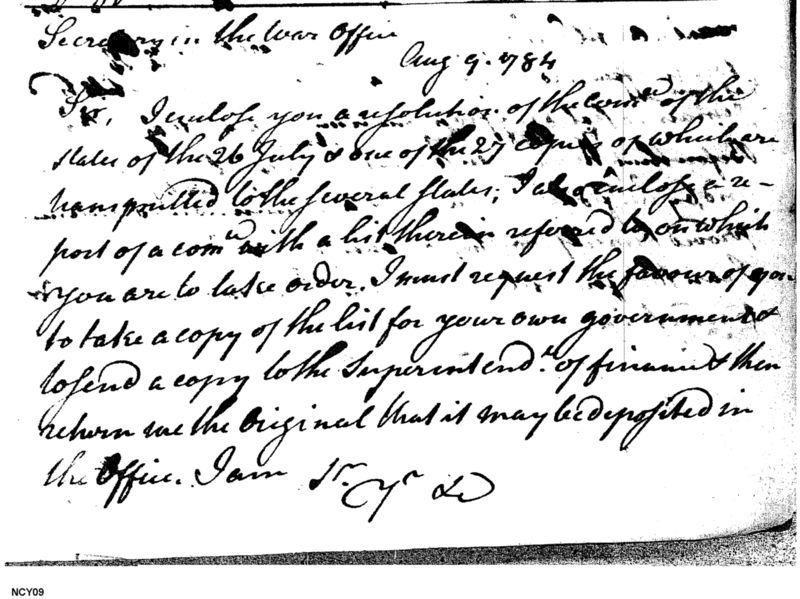 Secretary in the War Office
Aug 9. 1784
Sir, I enclose you a resolution of the Comee of the
states of the 26 July & one of the 27 copies of which are
transmitted to the several states; I also enclose a re-
port of a comee with a list therein referred to, on which
you are to take order. I must request the favour of you
to take a copy of the list for your own government &
to send a copy to the Superintendt. of finance & then
return me the Original that it may be deposited in
the Office. I am Sr. Yr &c
NCY09